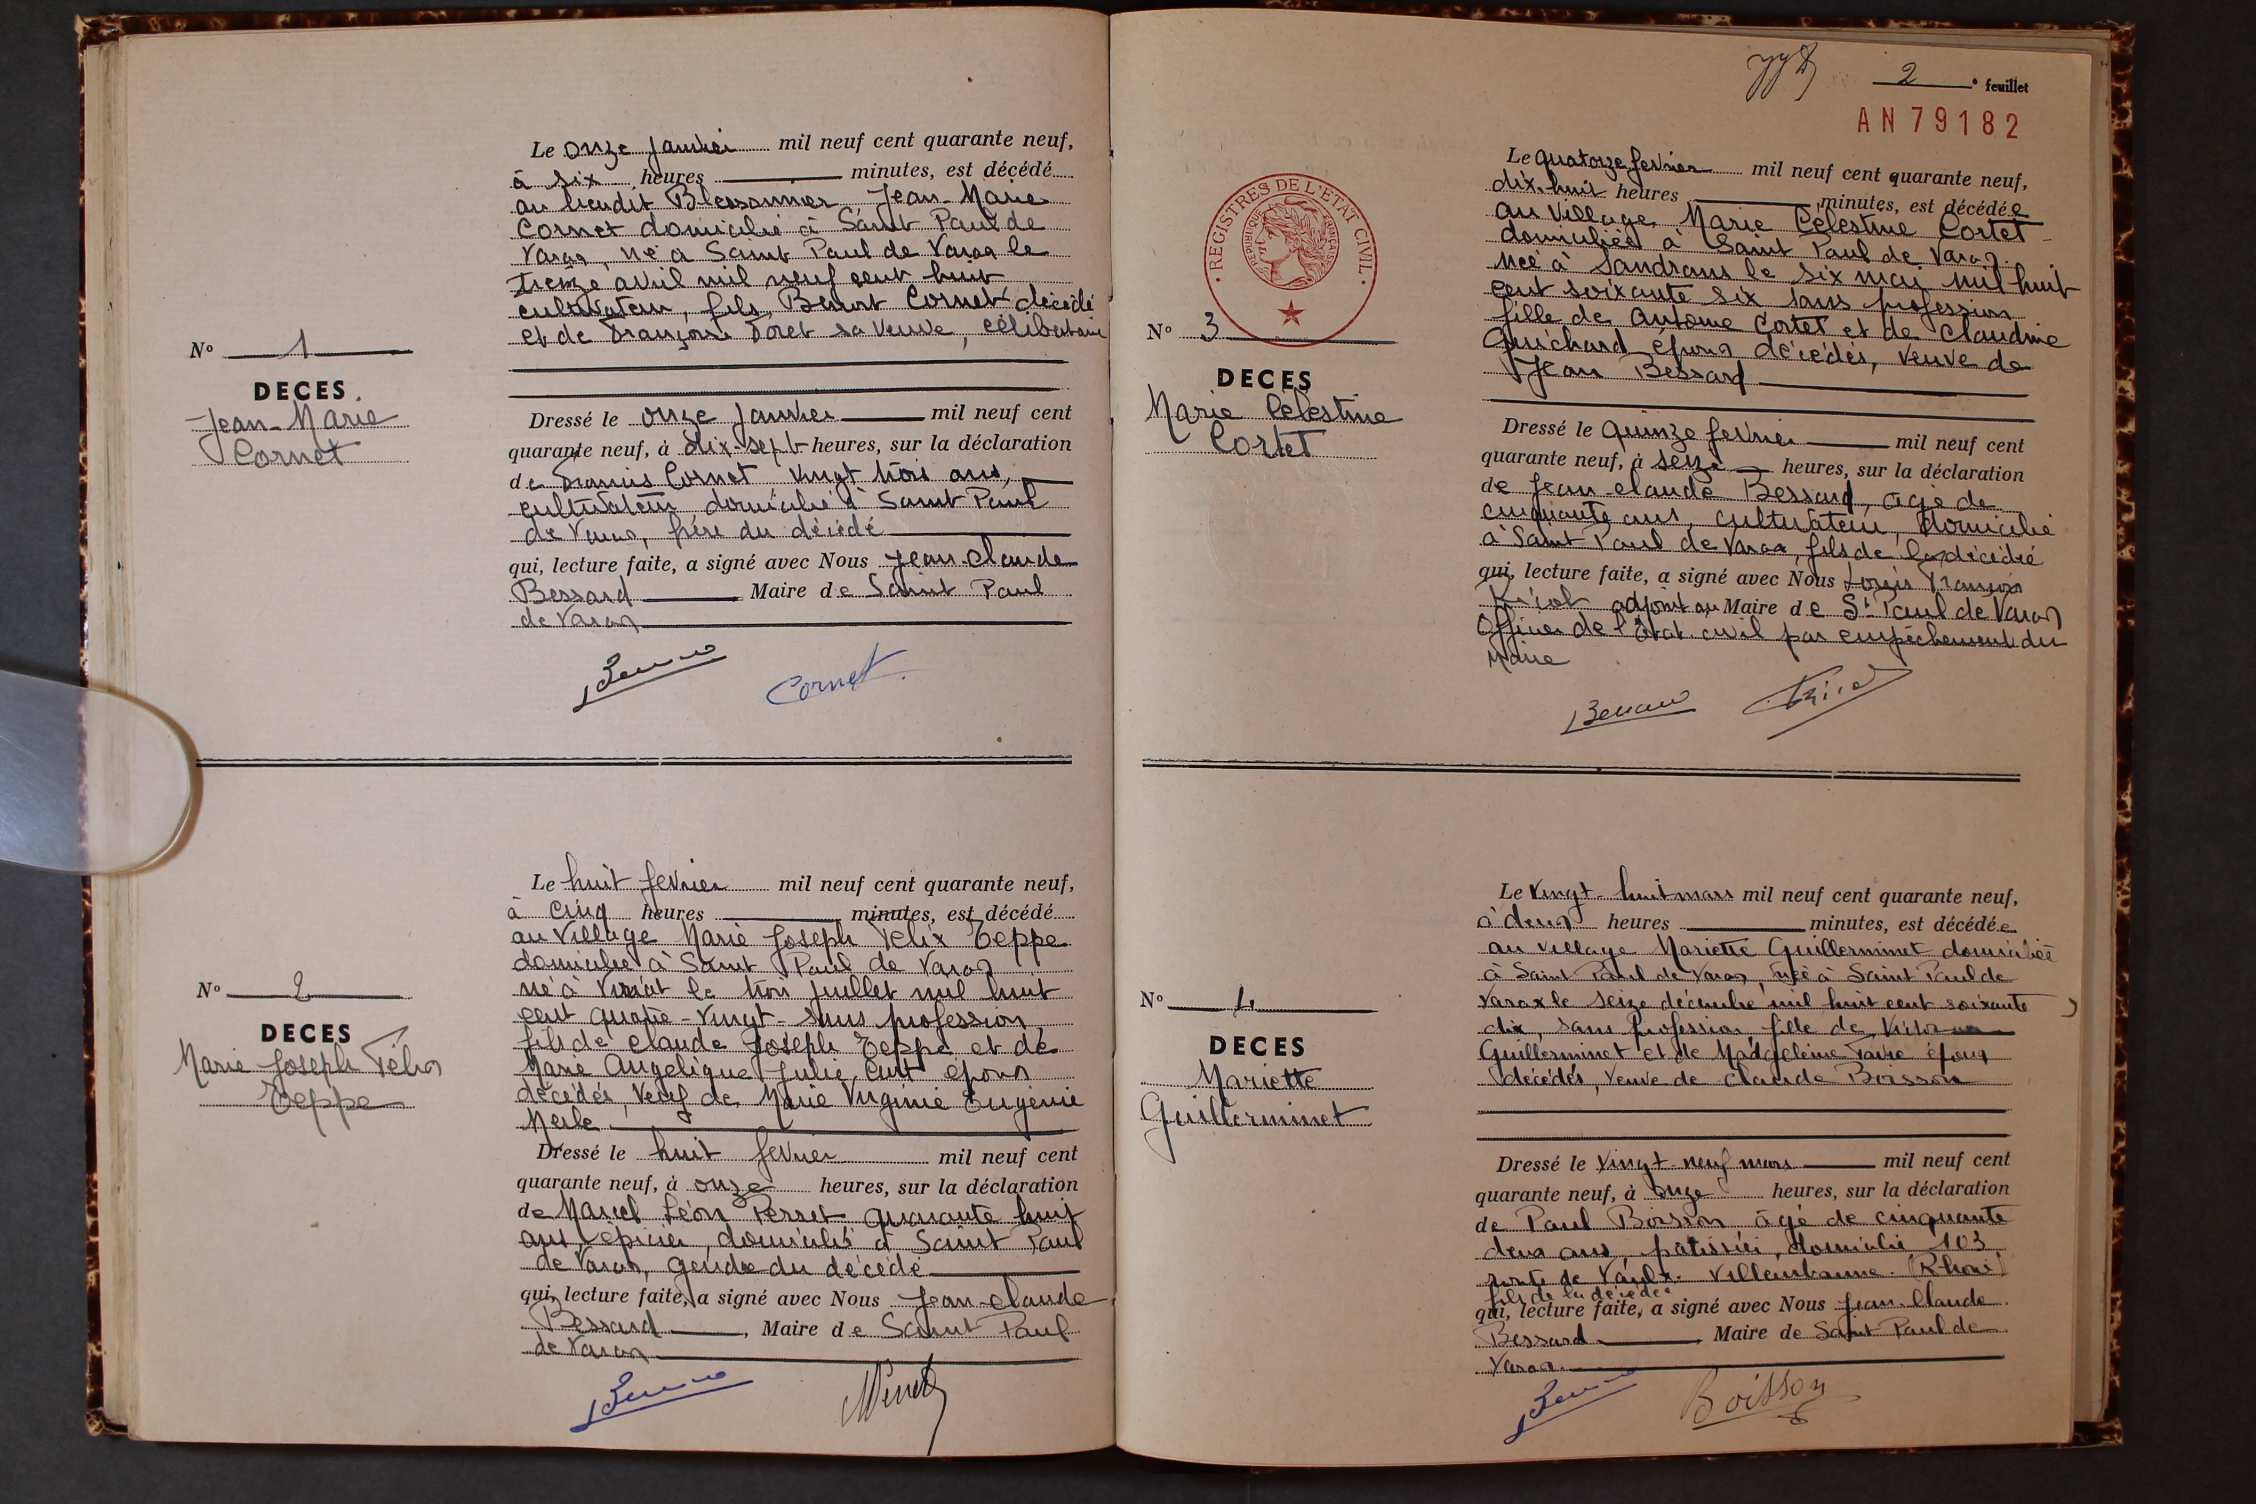 Le onze janvier mil neuf cent quarante neuf,
à six heures minutes, est décédé
au lieudit Blessonnier Jean-Marie
Cornet domicilié à Saint Paul de
Varax, né à Saint Paul de Varax le
treize avril mil neuf cent huit
cultivateur, fils Benoit Cornet décédé
et de Françoise Poret sa veuve, célibataire
N° 1
DECES
Jean-Marie
Cornet
Dressé le onze janvier mil neuf cent
quarante neuf, à dix-sept heures, sur la déclaration
de Francis Cornet vingt trois ans,
cultivateur domicilié à Saint Paul
de Varax, frère du décédé
qui, lecture faite, a signé avec Nous Jean-Claude
Bessard Maire de Saint Paul
de Varax
Cornet
Le huit fevrier mil neuf cent quarante neuf,
à cinq heures minutes, est décédé
au Village Marie Joseph Felix Teppe
domicilié à Saint Paul de Varax
né à Viriat le trois juillet mil huit
cent quatre-vingt-sans profession,
fils de Claude Joseph Teppe et de
Marie Angélique Julie Cuit époux
décédés, veuf de Marie Virginie Eugénie
Merle
N° 2
DECES
Marie Joseph Félix
Teppe
Dressé le huit fevrier mil neuf cent
quarante neuf, à onze heures, sur la déclaration
de Marcel Léon Perret quarante huit
ans, épicier, domicilié à Saint Paul
de Varax, gendre du décédé
qui, lecture faite, a signé avec Nous Jean-Claude
Bessard, Maire de Saint Paul
de Varax
2e feuillet
AN 79182
Le quatorze fevrier mil neuf cent quarante neuf,
dix-huit heures minutes, est décédée
au Village Marie Célestine Cortet
domiciliée à Saint Paul de Varax
née à Sandrans le six mai mil huit
cent soixante six sans profession
fille de Antoine Cortet et de Claudine
Guichard époux décédés, veuve de
Jean Bessard
• REGISTRES DE L'ETAT CIVIL •
REPUBLIQUE FRANÇAISE
N° 3
DECES
Marie Célestine
Cortet
Dressé le quinze fevrier mil neuf cent
quarante neuf, à seize heures, sur la déclaration
de Jean-Claude Bessard, agé de
cinquante ans, cultivateur, domicilié
à Saint Paul de Varax, fils de la décédé
qui, lecture faite, a signé avec Nous Louis François
adjoint au Maire de St Paul de Varax
Officier de l'état civil par empêchement du
Maire
Le vingt-huit mars mil neuf cent quarante neuf,
à deux heures minutes, est décédée
au village Mariette Guillerminet domiciliée
à Saint Paul de Varax, née à Saint Paul de
Varax le seize décembre mil huit cent soixante
dix, sans profession, fille de Victor
Guillerminet et de Madgeleine Favre époux
décédés, veuve de Claude Boisson
N° 4
DECES
Mariette
Guillerminet
Dressé le vingt-neuf mars mil neuf cent
quarante neuf, à onze heures, sur la déclaration
de Paul Boisson âgé de cinquante
deux ans, patissier, domicilié 103
route de Vaulx. Villeurbanne. (Rhône)
fils de la décédée
qui, lecture faite, a signé avec Nous Jean-Claude
Bessard Maire de Saint Paul de
Varax.
Boisson